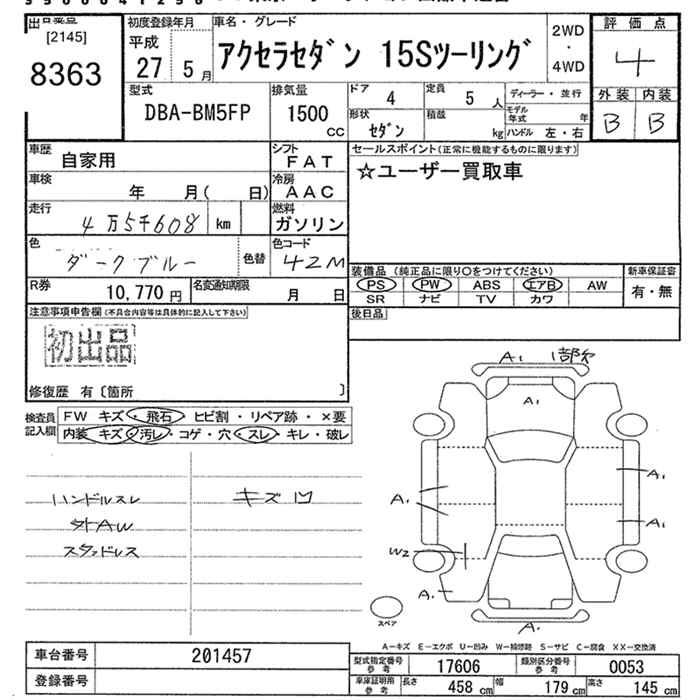 出品番
[2145]
8363
初度登録年月
平成
27 5月
車名・グレード
アクセラセダン 15Sツーリング
2WD
・
4WD
評価点
4
外装 内装
B B
型式
DBA-BM5FP
排気量
1500
CC
ドア 4
定員 5 人
形状 セダン
積載 kg
ディーラー・並行
モデル年式 年
ハンドル 左・右
車歴
自家用
シフト
FAT
車検
年 月( 日)
冷房
AAC
走行
4万5千608 km
燃料
ガソリン
色
ダークブルー
色替
色コード
42M
R券
10,770円
名変通知期限
月 日
セールスポイント(正常に機能するものに限ります)
☆ユーザー買取車
装備品 (純正品に限り○をつけてください)
PS PW ABS エアB AW
SR ナビ TV カワ
新車保証書
有・無
後日品
注意事項申告欄(不具合内容等は具体的に記入して下さい)
初出品
修復歴 有〔箇所 〕
検査員記入欄
FW キズ・飛石・ヒビ割・リペア跡・×要
内装 キズ・汚レ・コゲ・穴・スレ・キレ・破レ
ハンドルスレ
キズ凹
社外AW
スタッドレス
A1
A1
A1
A1
A1
W2
A1
A1
スペア
A-キズ E-エクボ U-凹み W-補修跡 S-サビ C-腐食 XX-交換済
車台番号
201457
登録番号
型式指定番号 参考
17606
類別区分番号 参考
0053
車庫証明用 参考
長さ 458 cm
幅 179 cm
高さ 145 cm